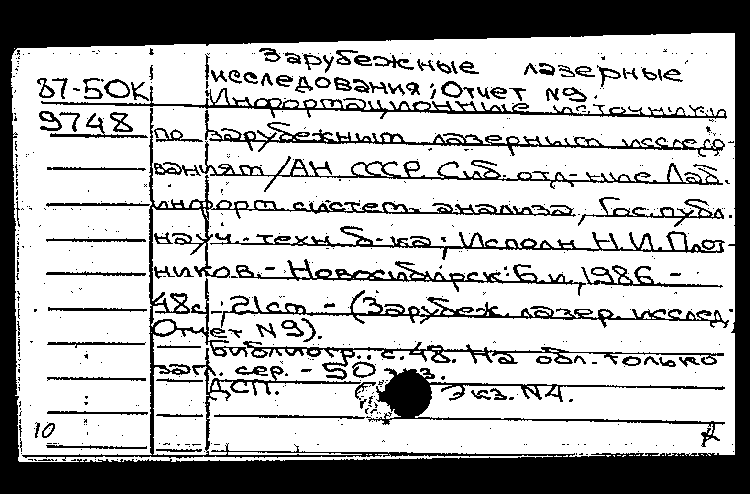 Зарубежные лазерные
87-БОК исследования; Отчет N9.
Информационные источники
9748 по зарубежным лазерным исследо-
ваниям / АН СССР. Сиб. отд-ние. Лаб.
информ. систем. анализа, Гос. публ.
науч.-техн. б-ка; Исполн. Н.И. Плот-
ников. - Новосибирск: Б.и., 1986 -
48с.; 21см. - (Зарубеж. лазер. исслед.;
Отчет N9).
Библиогр.: с. 48. На обл. только
загл. сер. - 50 экз.
ДСП. Экз. N4.
10